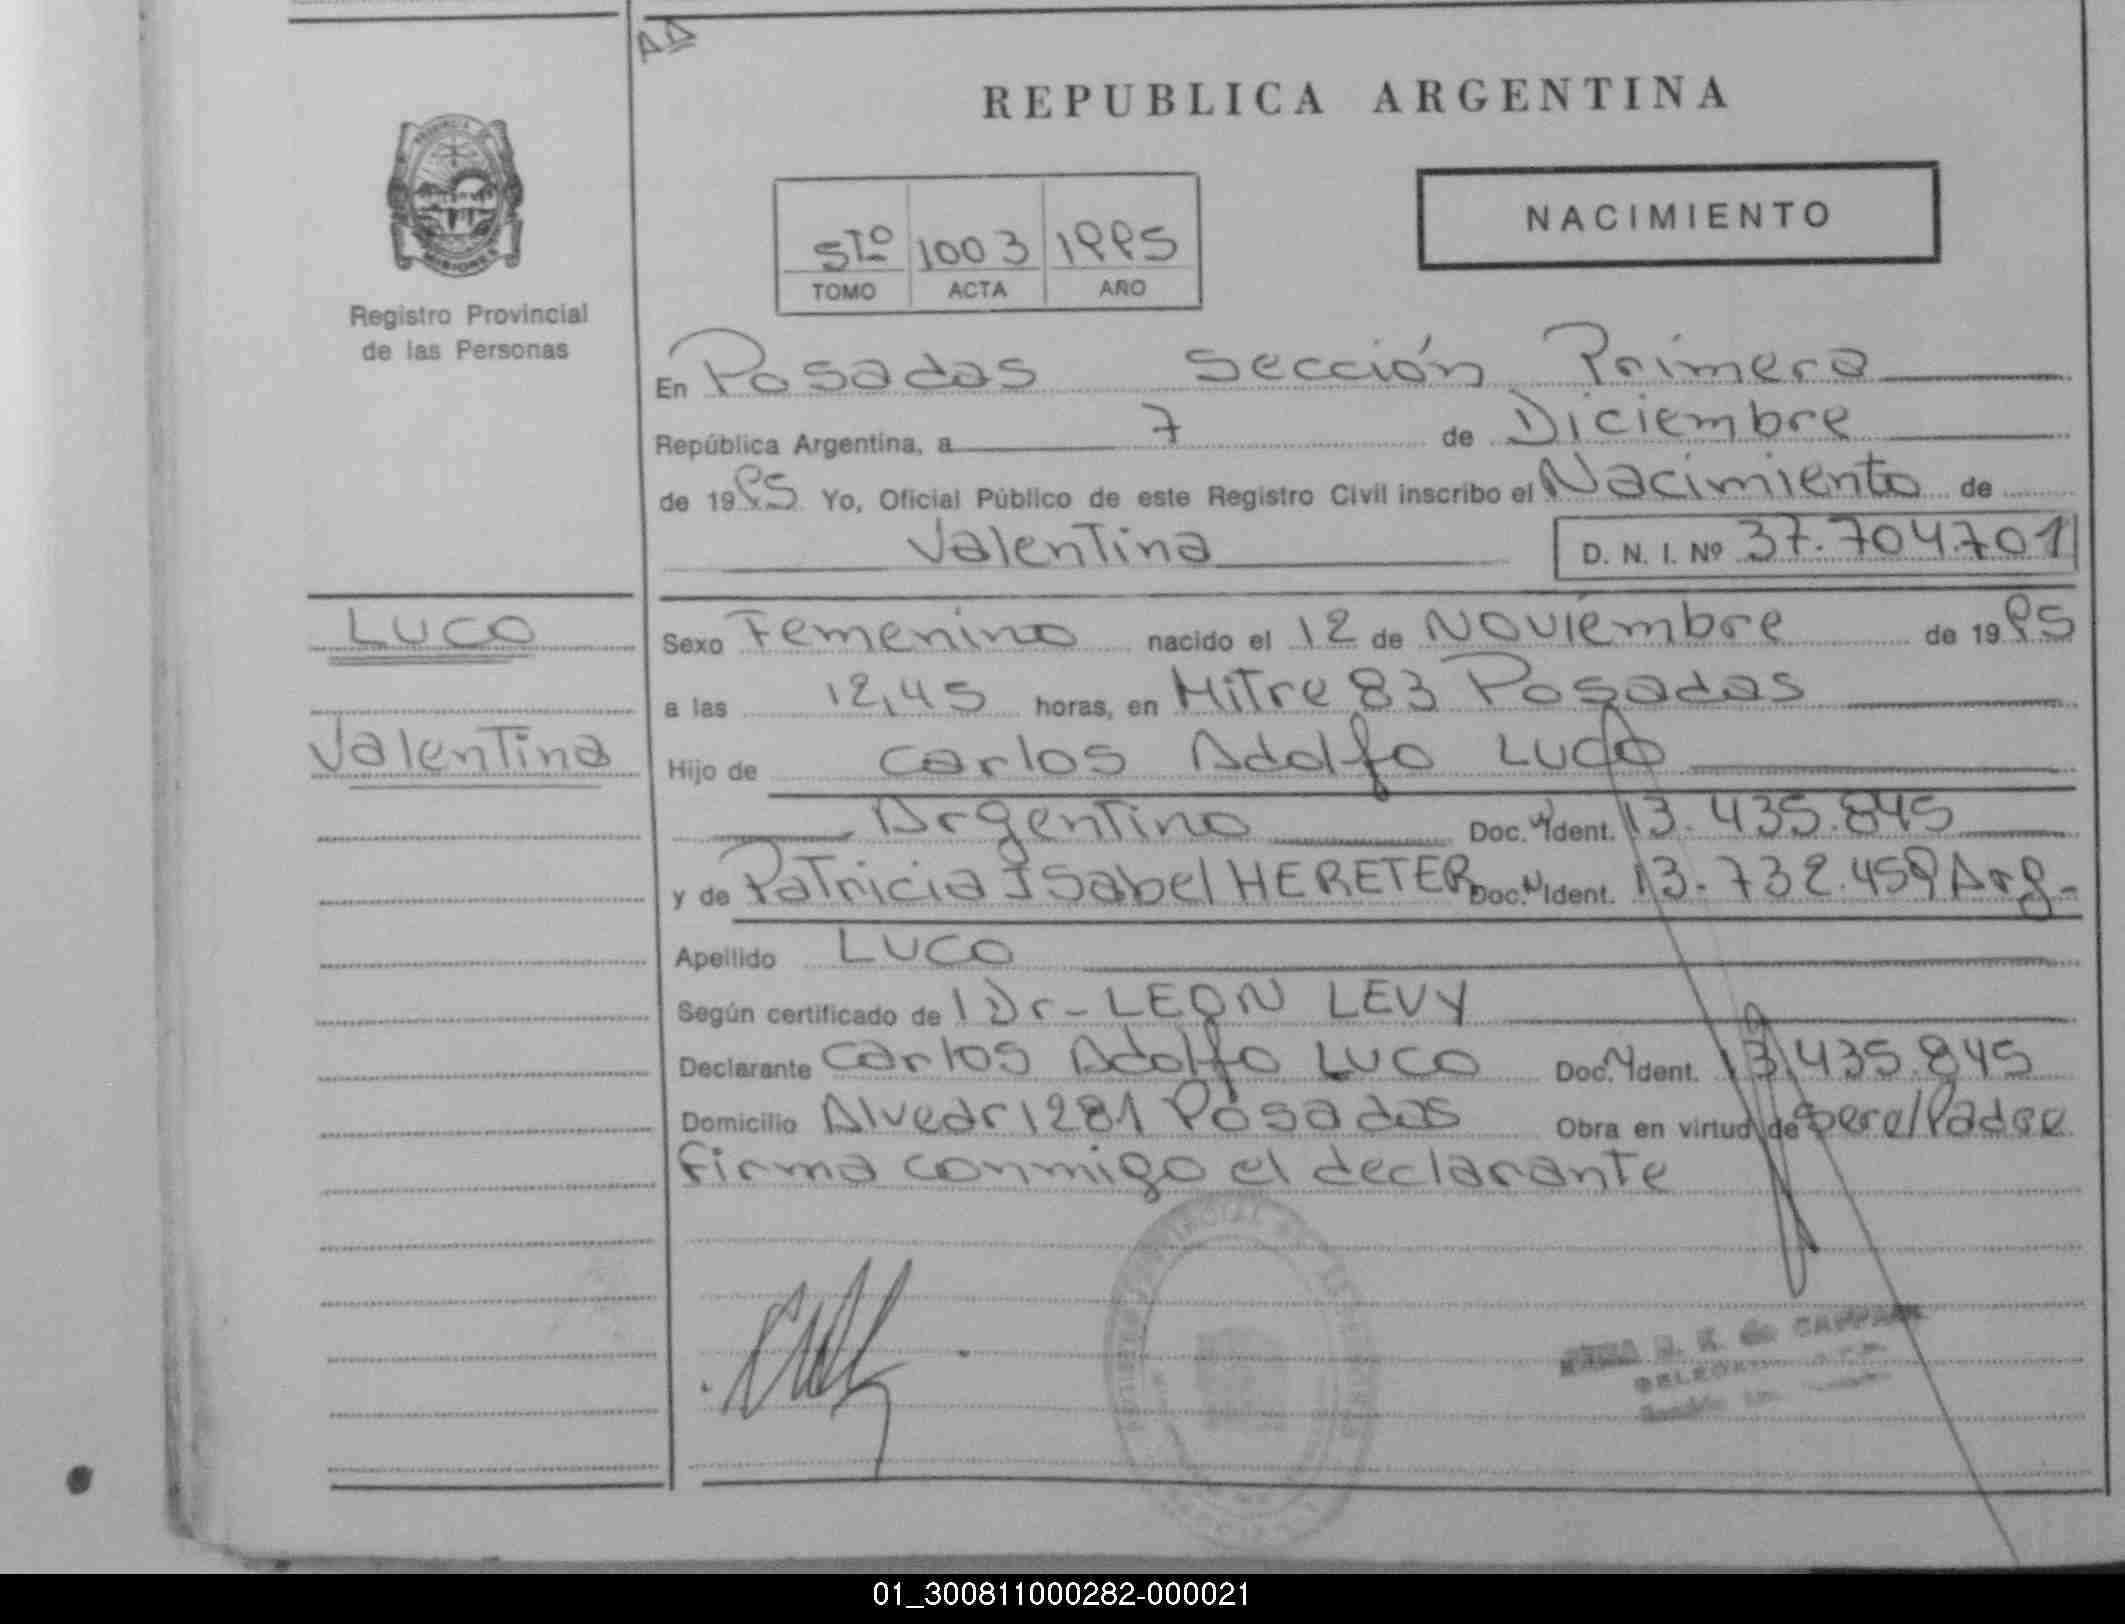 AD
REPUBLICA ARGENTINA
NACIMIENTO
5to 1003 1995
TOMO ACTA AÑO
MISIONES
Registro Provincial
de las Personas
En Posadas Sección Primera
República Argentina, a 7 de Diciembre
de 1995 Yo, Oficial Público de este Registro Civil inscribo el Nacimiento de
Valentina D. N. I. Nº 37.704.701
LUCO
Valentina
Sexo Femenino nacido el 12 de Noviembre de 1995
a las 12,45 horas, en Mitre 83 Posadas
Hijo de Carlos Adolfo Luco
Argentino Doc. Ident. 13.435.845
y de Patricia Isabel HERETER Doc. Ident. 13.732.459 Arg-
Apellido LUCO
Según certificado de l Dr- LEON LEVY
Declarante Carlos Adolfo LUCO Doc. Ident. 13.435.845
Domicilio Alvear 1281 Posadas Obra en virtud de ser el Padre
Firma conmigo el declarante
01_300811000282-000021